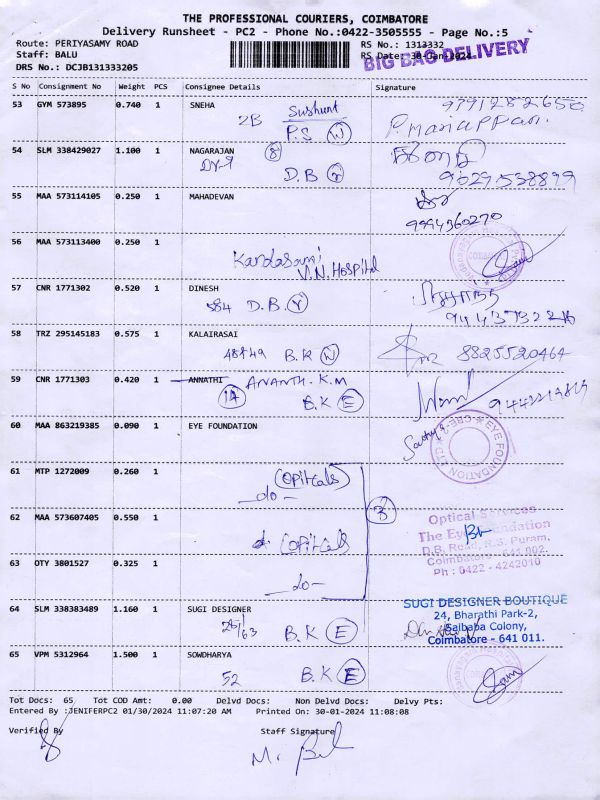 THE PROFESSIONAL COURIERS, COIMBATORE
Delivery Runsheet - PC2 - Phone No.:0422-3505555 - Page No.:5
Route: PERIYASAMY ROAD RS No.: 1313332
Staff: BALU RS Date: 30-Jan-2024
DRS No.: DCJB131333205
BIG BAG DELIVERY
S No Consignment No Weight PCS Consignee Details Signature
53 GYM 573895 0.740 1 SNEHA
2B Sushunt
P.S W
54 SLM 338429027 1.100 1 NAGARAJAN 8
D.B Y
9029538899
55 MAA 573114105 0.250 1 MAHADEVAN
9994360270
56 MAA 573113400 0.250 1
Kandasami
V.N. Hospital
57 CNR 1771302 0.520 1 DINESH
584 D.B. Y
58 TRZ 295145183 0.575 1 KALAIRASAI
B.K W 8825520464
59 CNR 1771303 0.420 1 ANNATHI ANANTH.K.M
B.K E
60 MAA 863219385 0.090 1 EYE FOUNDATION
EYE FOUNDATION
61 MTP 1272009 0.260 1 (opticals)
-do-
62 MAA 573607405 0.550 1
opticals
Optical Services
The Eye Foundation
D.B. Road, R.S. Puram,
Coimbatore - 641 002.
Ph : 0422 - 4242010
63 OTY 3801527 0.325 1
-do-
64 SLM 338383489 1.160 1 SUGI DESIGNER
B.K E
SUGI DESIGNER BOUTIQUE
24, Bharathi Park-2,
Saibaba Colony,
Coimbatore - 641 011.
65 VPM 5312964 1.500 1 SOWDHARYA
52 B.K E
Tot Docs: 65 Tot COD Amt: 0.00 Delvd Docs: Non Delvd Docs: Delvy Pts:
Entered By :JENIFERPC2 01/30/2024 11:07:20 AM Printed On: 30-01-2024 11:08:08
Verified By Staff Signature